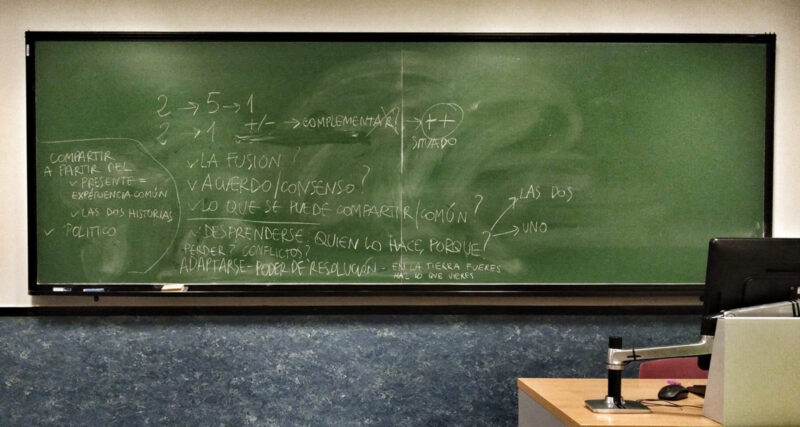 2 → 5 → 1
2 → 1 +/- → COMPLEMENTAR → ++
SITUADO
COMPARTIR
A PARTIR DEL
✓ PRESENTE =
EXPERIENCIA COMÚN
✓ LAS DOS HISTORIAS
✓ POLITICO
✓ LA FUSIÓN?
✓ ACUERDO/CONSENSO?
✓ LO QUE SE PUEDE COMPARTIR/COMÚN?
✓ DESPRENDERSE, QUIEN LO HACE PORQUE?
→ LAS DOS
→ UNO
PERDER? CONFLICTOS?
ADAPTARSE - PODER DE RESOLUCIÓN - EN LA TIERRA FUERES
HAZ LO QUE VIERES